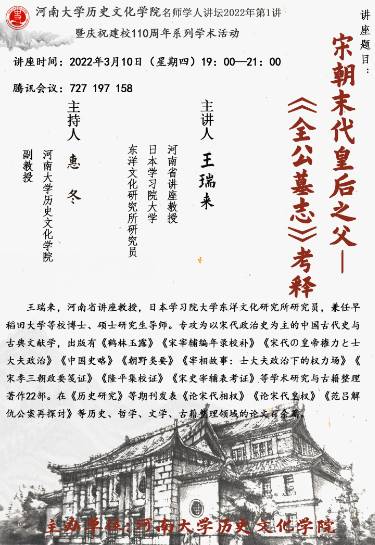 河南大学历史文化学院名师学人讲坛2022年第1讲
暨庆祝建校110周年系列学术活动
讲座时间：2022年3月10日（星期四）19：00—21：00
腾讯会议：727 197 158
讲座题目：
宋朝末代皇后之父—
《全公墓志》考释
主讲人 王瑞来
河南省讲座教授
日本学习院大学
东洋文化研究所研究员
主持人 惠 冬
河南大学历史文化学院
副教授
王瑞来，河南省讲座教授，日本学习院大学东洋文化研究所研究员，兼任早
稻田大学等校博士、硕士研究生导师。专攻为以宋代政治史为主的中国古代史与
古典文献学，出版有《鹤林玉露》《宋宰辅编年录校补》《宋代の皇帝権力と士
大夫政治》《中国史略》《朝野类要》《宰相故事：士大夫政治下的权力场》《
宋季三朝政要笺证》《隆平集校证》《宋史宰辅表考证》等学术研究与古籍整理
著作22部。在《历史研究》等期刊发表《论宋代相权》《论宋代皇权》《范吕解
仇公案再探讨》等历史、哲学、文学、古籍整理领域的论文百余篇。
主办单位：河南大学历史文化学院